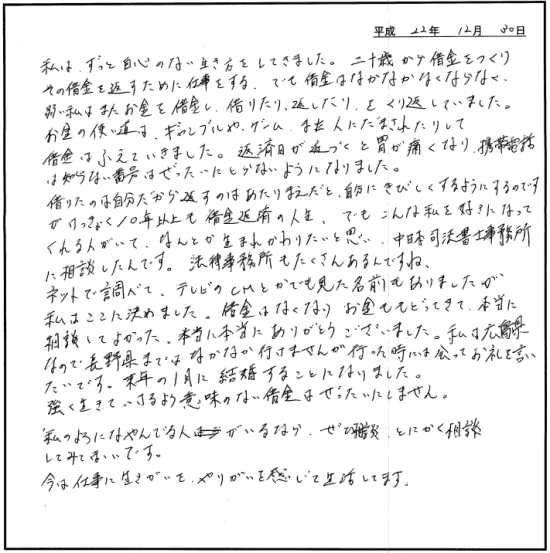 平成 22年 12月 30日
私は、ずっと自心のない生き方をしてきました。二十歳から借金をつくり
その借金を返すために仕事をする、でも借金はなかなかなくならなく、
弱い私はまたお金を借金し、借りたり、返したり、をくり返していました。
お金の使い道は、ギャンブルや、ゲーム、また人にだまされたりして
借金はふえていきました。返済日が近づくと胃が痛くなり、携帯電話
は知らない番号はぜったいにとらないようになりました。
借りたのは自分だから返すのはあたりまえだと、自分にきびしくするようにするのです
がけっきょく10年以上も借金返済の人生、でもこんな私を好きになって
くれる人がいて、なんとか生まれかわりたいと思い、中日本司法書士事務所
に相談したんです。法律事務所もたくさんあるんですね、
ネットで調べて、テレビのCMとかでも見た名前もありましたが
私はここに決めました。借金はなくなりお金ももどってきて、本当に
相談してよかった、本当に本当にありがとうございました。私は広島県
なので長野県まではなかなか行けませんが行った時には会ってお礼を言い
たいです。来年の1月に結婚することになりました。
強く生きていけるよう意味のない借金はぜったいにしません。
私のようになやんでる人がいるなら、ぜひ相談、とにかく相談
してみてほいです。
今は仕事に生きがいを、やりがいを感じて生活してます。